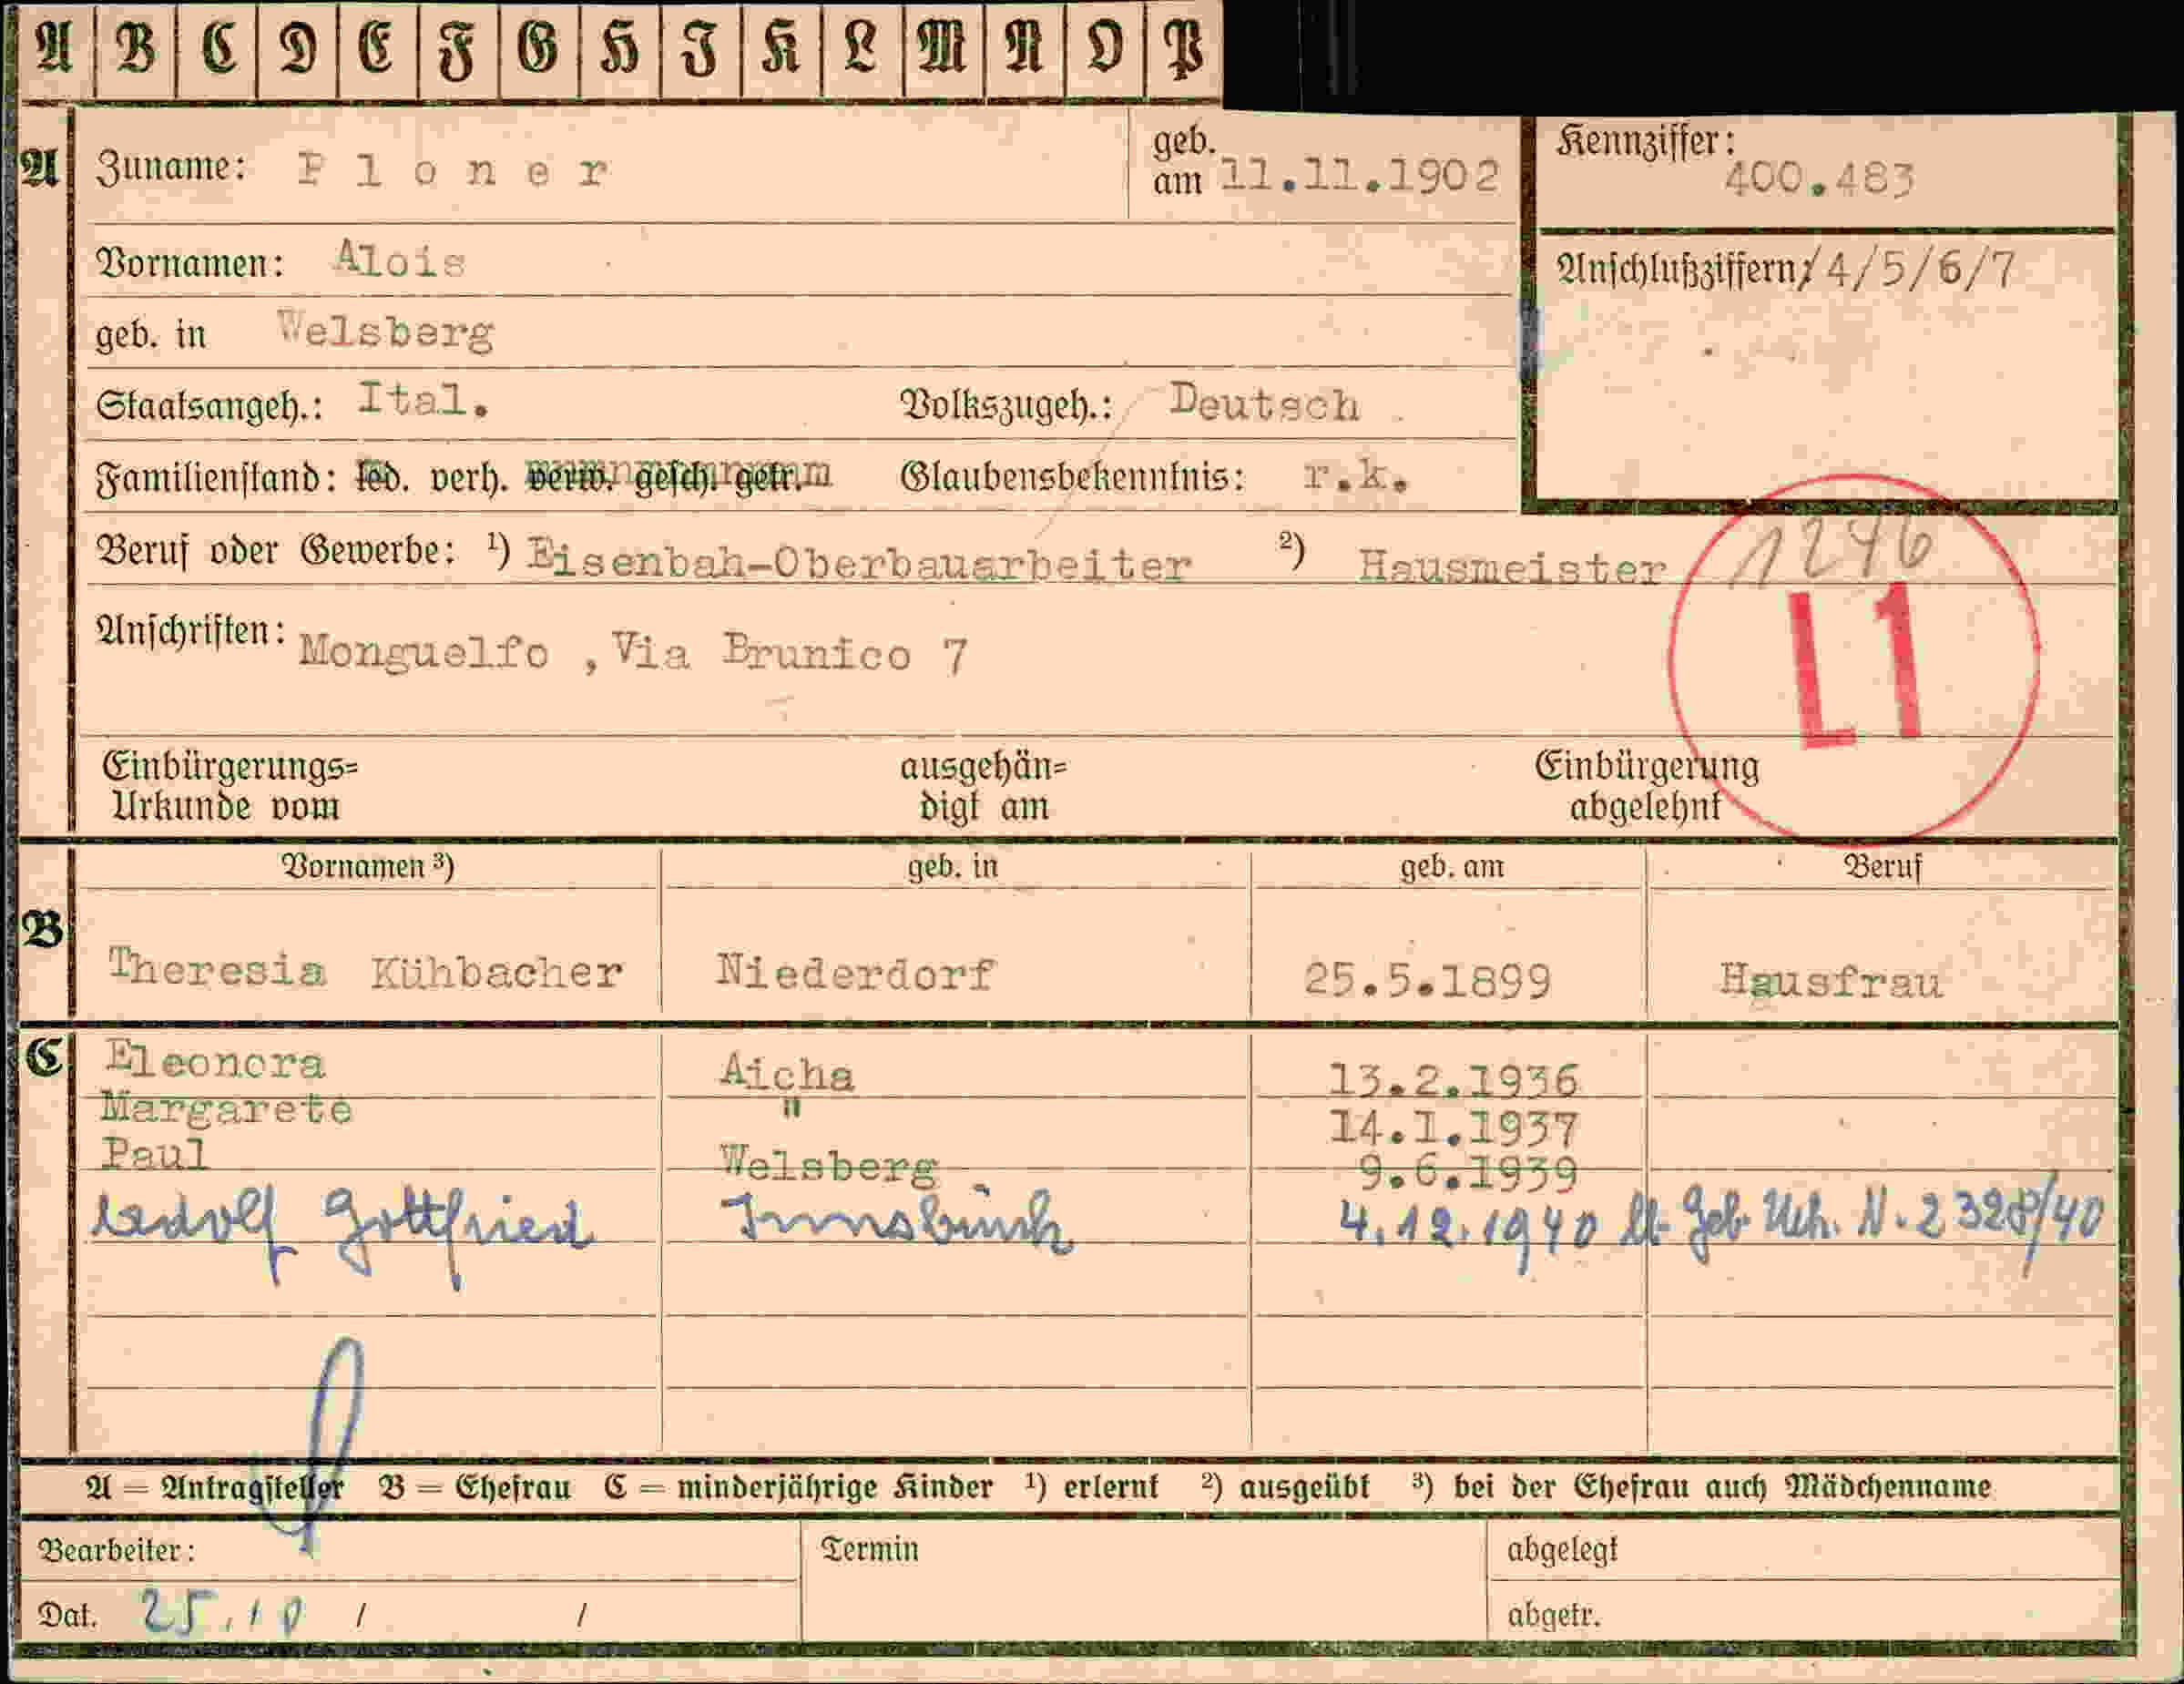 A B C D E F G H I K L M N O P
A Zuname: Ploner geb. am 11.11.1902 Kennziffer: 400.483
Vornamen: Alois Anschlußziffern: /4/5/6/7
geb. in Welsberg
Staatsangeh.: Ital. Volkszugeh.: Deutsch
Familienstand: led. verh. verw. gesch. getr. Glaubensbekenntnis: r.k.
1246
Beruf oder Gewerbe: ¹) Eisenbah-Oberbauarbeiter ²) Hausmeister
L1
Anschriften: Monguelfo , Via Brunico 7
Einbürgerungs= ausgehän= Einbürgerung
Urkunde vom digt am abgelehnt
Vornamen ³) geb. in geb. am Beruf
B Theresia Kühbacher Niederdorf 25.5.1899 Hausfrau
C Eleonora Aicha 13.2.1936
Margarete " 14.1.1937
Paul Welsberg 9.6.1939
Gottfried Innsbruck 4.12.1940 lt. Geb. Urk. N. 2328/40
A = Antragsteller B = Ehefrau C = minderjährige Kinder ¹) erlernt ²) ausgeübt ³) bei der Ehefrau auch Mädchenname
Bearbeiter: Termin abgelegt
Dat. 25.10 / / abgetr.